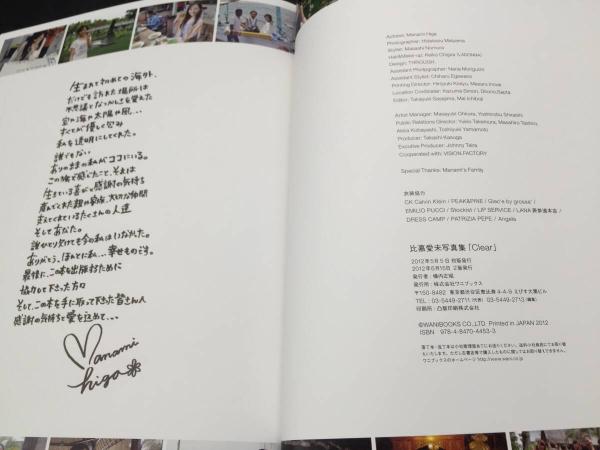 生まれて初めての海外、
だけども訪れた場所は
不思議となつかしさを覚えた
空や海や太陽や風…
すべてが優しく包み
私を透明にしてくれた。
誰でもない
ありのままの私がココにいる。
この旅で感じたこと、それは
生きている喜びと感謝の気持ち
産んでくれた親や家族、大切な仲間
支えてくれているたくさんの人達
そしてあなた。
誰ひとり欠けても今の私はいなかった。
ありがとう、ほんとに私…幸せものです。
最後に、この本を出版するために
協力して下さった方々
そして、この本を手に取って下さった皆さんへ
感謝の気持ちと愛を込めて…
Manami
higa
Actress: Manami Higa
Photographer:
Stylist: Masashi Nomura
Hair&Make-up:
Design: THROUGH.
Assistant Photographer: Nana Moriguchi
Assistant Stylist: Chiharu Egawara
Printing Director: Hiroyuki Kireyu, Masaru Inoue
Location Cordinater: Kazuma Simon, Dhono Sapta
Editor: Takayuki Sasajima, Mai Ichiboji
Artist Manager: Masayuki Ohkura, Yoshinobu Shiraishi
Public Relations Director: Yukio Takemura, Masahiro Tashiro,
Akiko Kobayashi, Toshiyuki Yamamoto
Producer: Takashi Kasuga
Executive Producer: Johnny Taira
Cooperated with: VISION FACTORY
Special Thanks: Manami's Family
衣装協力
CK Calvin Klein / PEAK&PINE / Giac'e by grosse' /
EMILIO PUCCI / Stockist / LIP SERVICE / LANA 表参道本店 /
DRESS CAMP / PATRIZIA PEPE / Angela
比嘉愛未写真集「Clear」
2012年5月5日 初版発行
2012年6月15日 2版発行
発行者:横内正昭
発行所:株式会社ワニブックス
〒150-8482 東京都渋谷区恵比寿4-4-9 えびす大黒ビル
TEL:03-5449-2711(代表) 03-5449-2713(編集)
印刷所:凸版印刷株式会社
©WANIBOOKS CO.,LTD. Printed in JAPAN 2012
ISBN 978-4-8470-4453-3
落丁本・乱丁本は小社管理部宛にお送りください。送料小社負担にてお取り替え
いたします。ただし古書店等で購入したものに関してはお取り替えできません。
ワニブックスのホームページ http://www.wani.co.jp